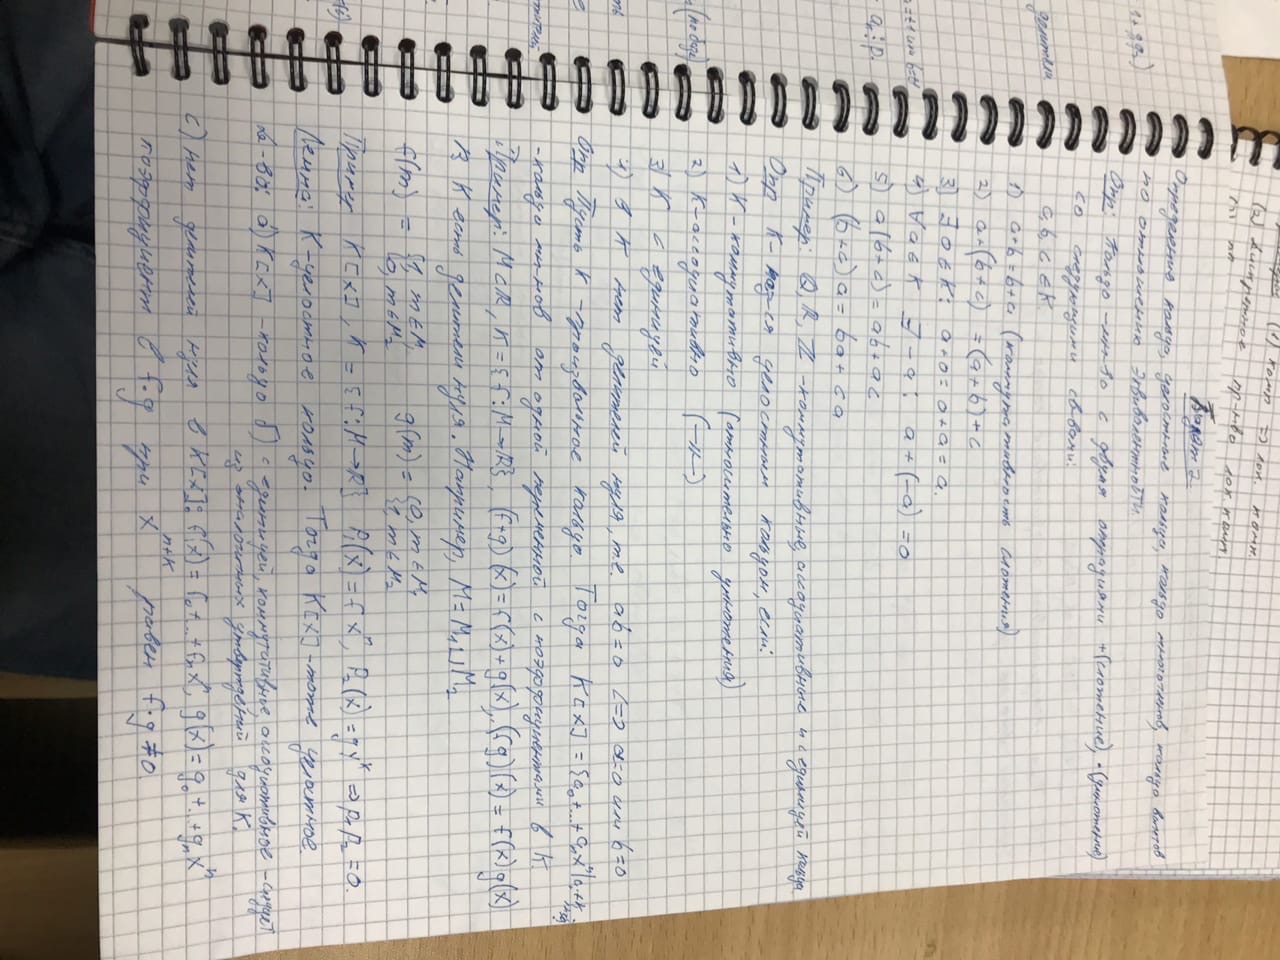 (1) комп => лок. комп.
(2) дискретное пр-тво лок. комп.
Билет 2
Определение кольца, целостные кольца, кольцо многочленов, кольцо вычетов
по отношению эквивалентности.
Опр: Кольцо – мн-во с двумя операциями +(сложение), ·(умножение)
со следующими св-вами:
a, b, c ∈ K.
1) a+b=b+a (коммутативность сложения)
2) a+(b+c) =(a+b)+c
3) ∃ 0 ∈ K: a+0=0+a=a.
4) ∀a∈K ∃ -a: a+(-a)=0
5) a(b+c)=ab+ac
6) (b+c)a=ba+ca
Пример: Q, R, Z – коммутативные, ассоциативные и с единицей кольца
Опр K – наз-ся целостным кольцом, если:
1) K – коммутативно (относительно умножения)
2) K – ассоциативно (—//—)
3) K с единицей
4) В K нет делителей нуля, т.е. ab=0 <=> a=0 или b=0
Опр Пусть K – произвольное кольцо. Тогда K[x] = {a₀+...+aₙxⁿ|
- кольцо мн-нов от одной переменной с коэффициентами в K.
Пример: M⊂R, K={f:M→R}, (f+g)(x)=f(x)+g(x), (fg)(x)=f(x)g(x)
В K есть делители нуля. Например, M=M₁⊔M₂
f(m) = {1, m∈M₁ g(m) = {0, m∈M₁
0, m∈M₂ 1, m∈M₂
Пример K[x], K={f:M→R} P₁(x)=f xⁿ, P₂(x)=g yᵏ => p₁p₂=0.
Лемма: K – целостное кольцо. Тогда K[x] – тоже целостное.
Д-во: а) K[x] – кольцо б) с единицей, коммутативное, ассоциативное – следует
из аналогичных утверждений для K.
с) нет делителей нуля в K[x]: f(x)=f₀+...+fₙxⁿ, g(x)=g₀+...+gₙxⁿ
коэффициент в f·g при xⁿ⁺ᵏ равен f·g≠0.
делители
aₙ⋮p.
(по базе)